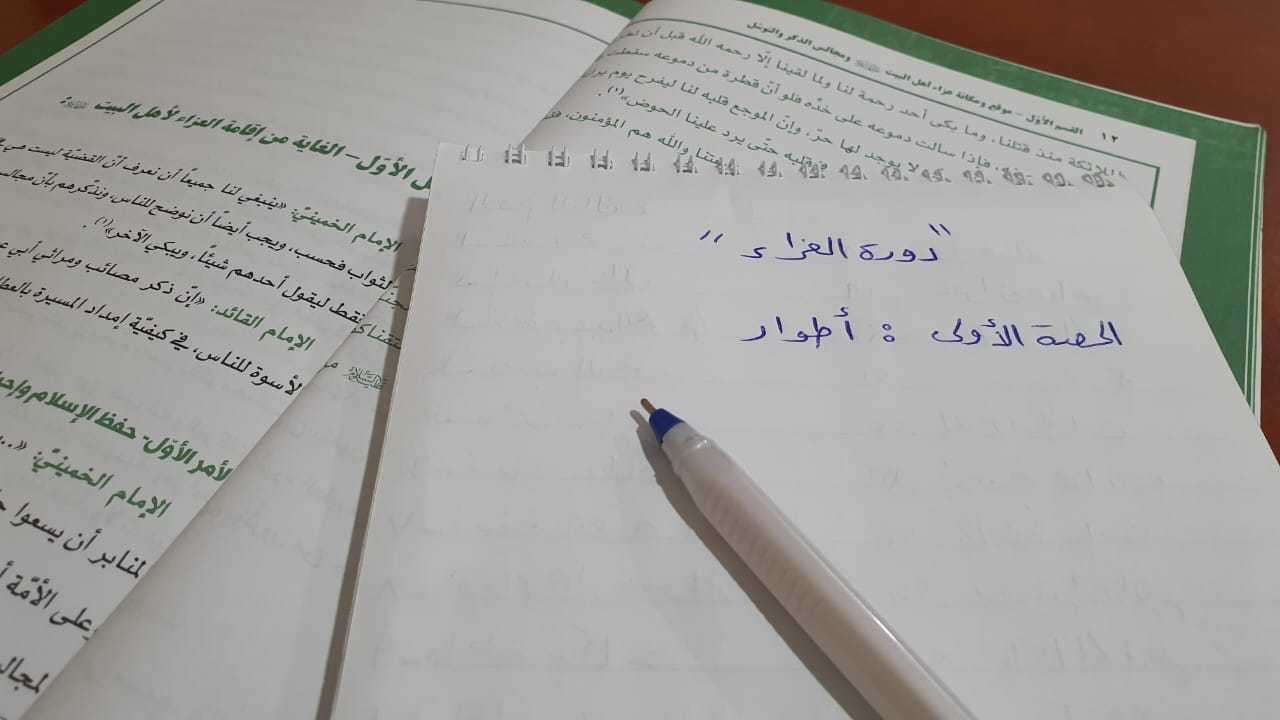 ١٢ القسم الأوّل - موقع ومكانة عزاء أهل البيت ومجالس الذكر والتوسّل
الملائكة منذ قتلنا، وما بكى أحد رحمة لنا ولما لقينا إلّا رحمه الله قبل أن
فإذا سالت دموعه على خدّه فلو أنّ قطرة من دموعه سقطت
لا يوجد لها حرّ، وإنّ الموجع قلبه لنا ليفرح يوم
قلبه حتّى يرد علينا الحوض»(١).
والله هم المؤمنون،
"دورة العزاء"
الحصة الأولى : أطوار
الأوّل - الغاية من إقامة العزاء لأهل البيت
الإمام الخمينيّ: «ينبغي لنا جميعاً أن نعرف أنّ القضيّة ليست
الثواب فحسب، ويجب أيضاً أن نوضح للناس، ونذكّرهم بأنّ مجالس
فقط ليقول أحدهم شيئاً، ويبكي الآخر»(١).
الإمام القائد: «إنّ ذكر مصائب ومراثي أبي
لأسوة للناس، في كيفيّة إمداد المسيرة
الأمر الأوّل- حفظ الإسلام
الإمام الخمينيّ: «...
المنابر أن يسعوا
وعلى الأمّة